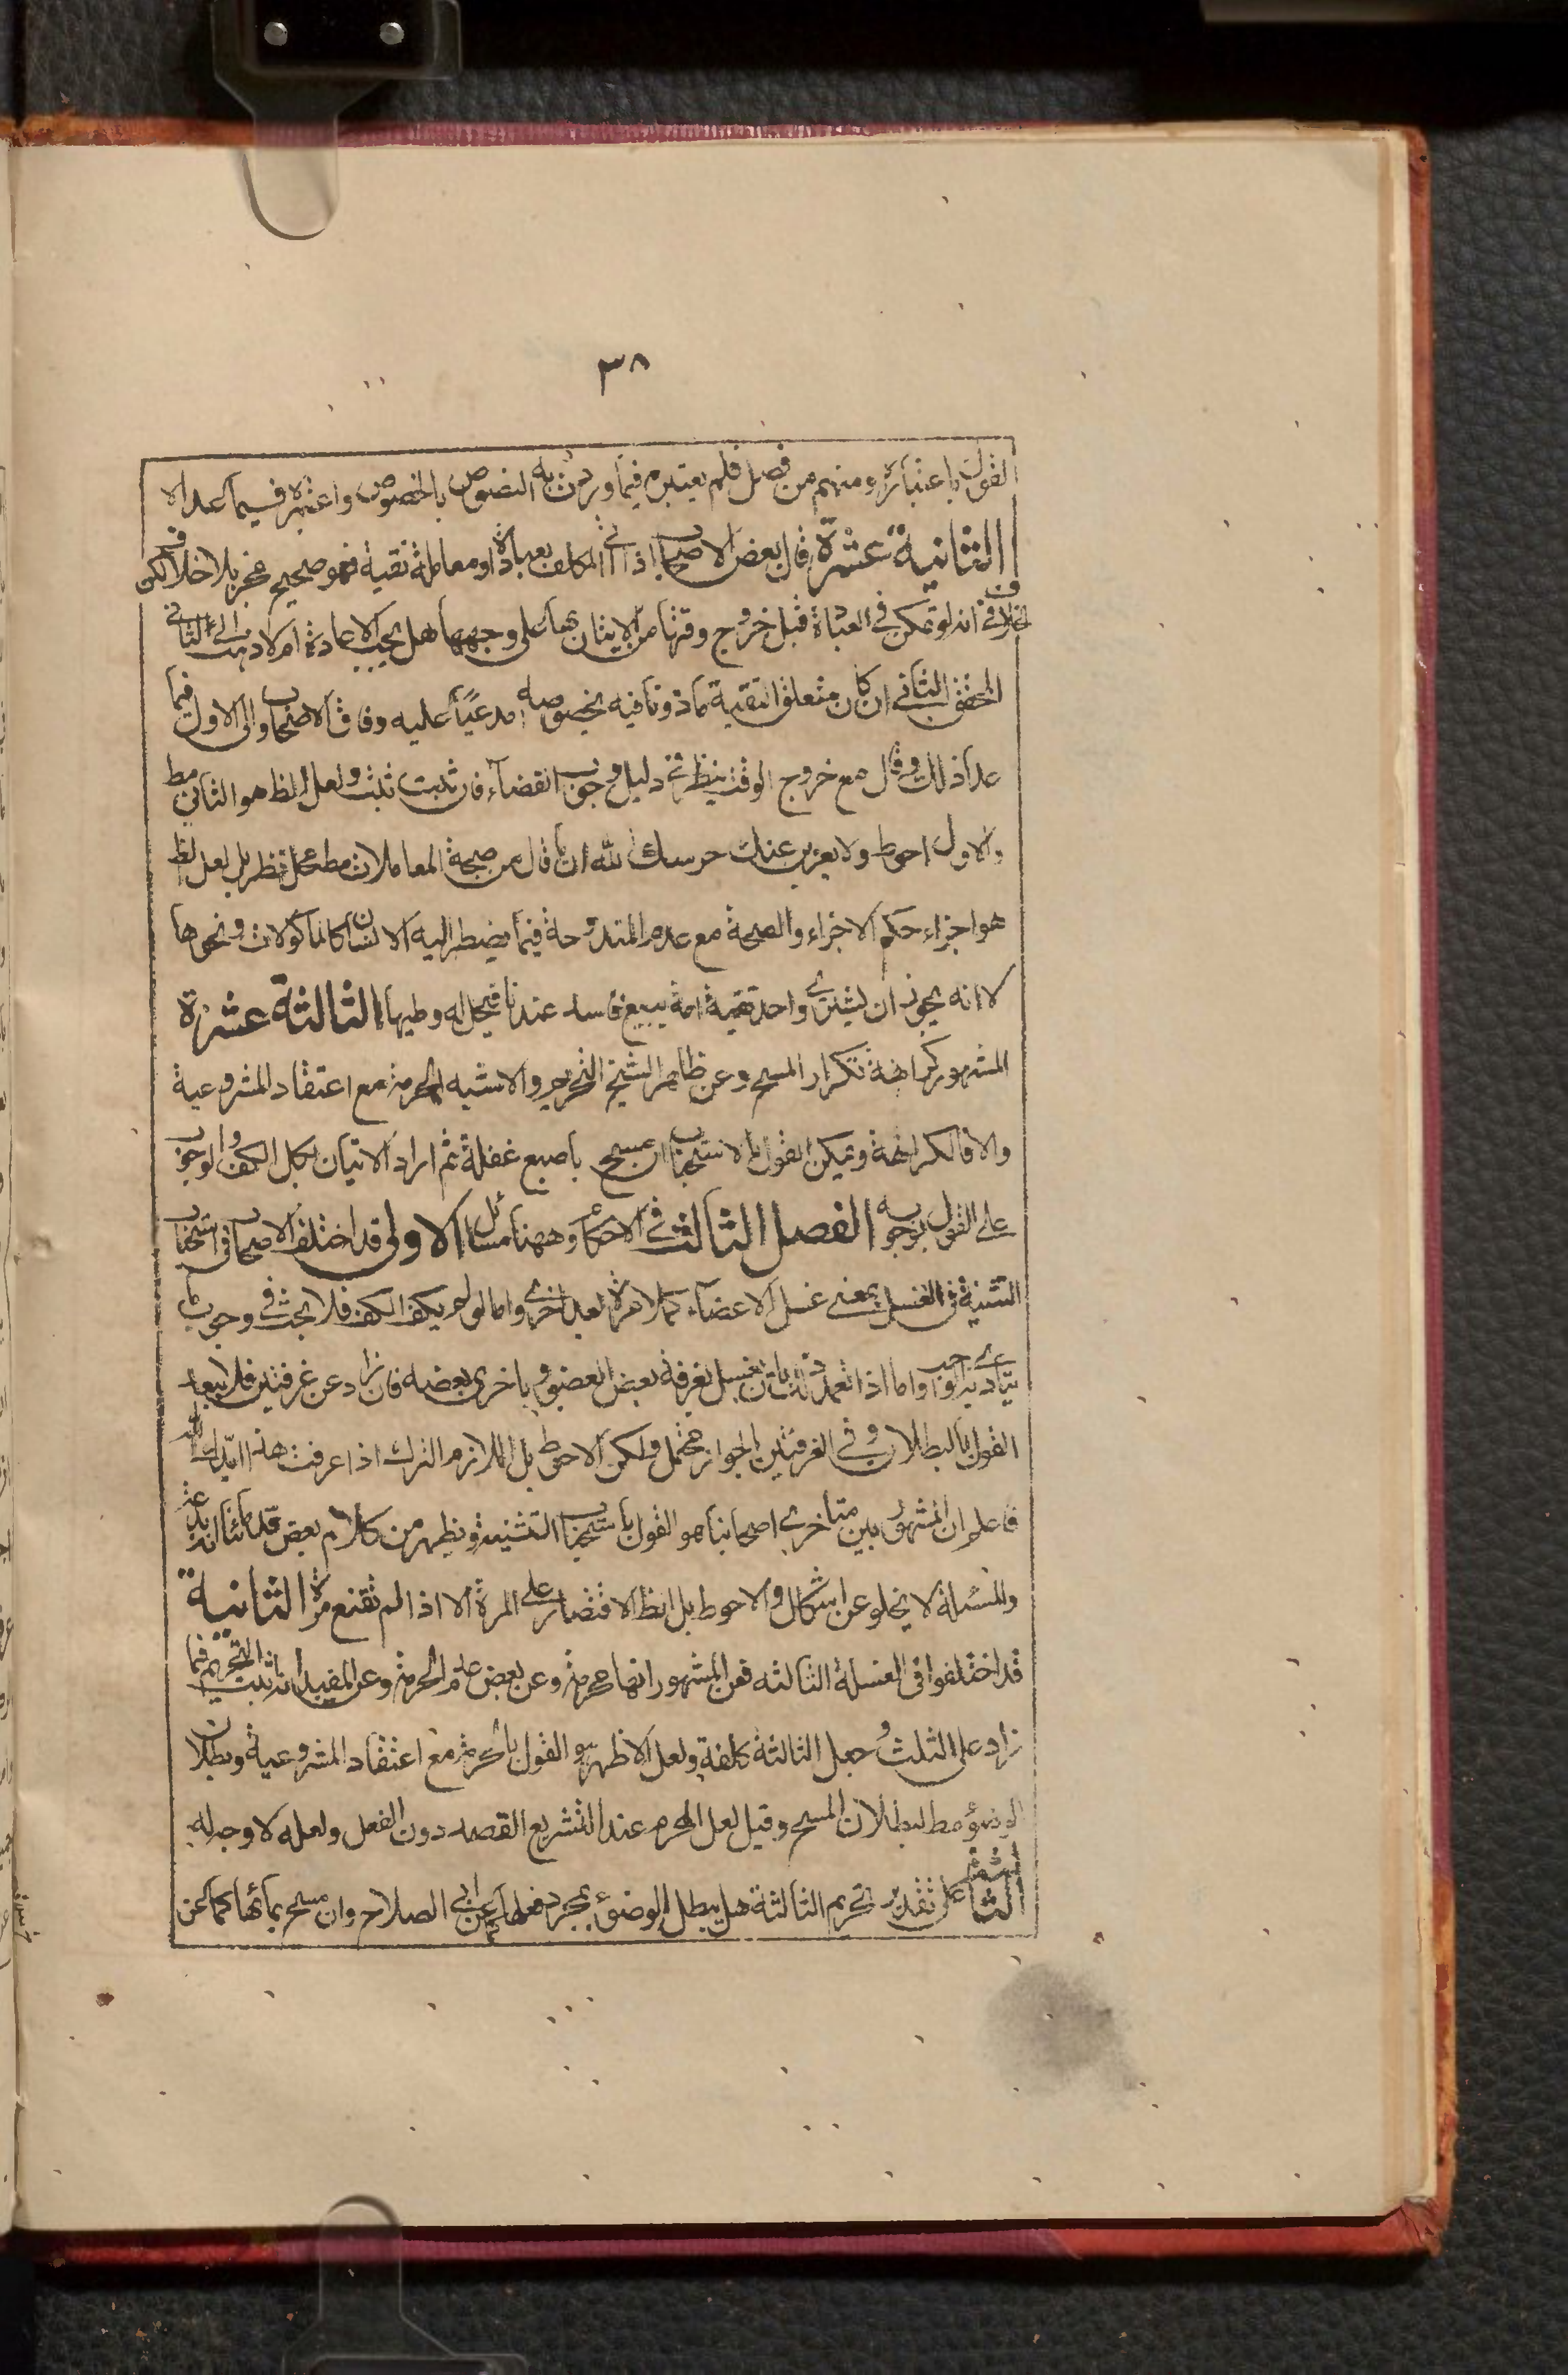 ٣٨
القول باعتباره ومنهم من فصل فلم يعتبره فيما وردت به النصوص بالخصوص واعتبره فيما عداه
الثانية عشرة قال بعض الاصحاب اذا اتى المكلف بعبادة او معاملة تقية فهو صحيح مجز بلا خلاف لكن
الخلاف في انه لو تمكن في العبادة قبل خروج وقتها من الاتيان بها على وجهها هل يجب الاعادة ام لا ذهب الى الثاني
المحقق الثاني ان كان متعلق التقية ماذونا فيه بخصوصه مدعيا عليه وفاق الاصحاب والى الاول فيما
عدا ذلك وقال مع خروج الوقت ينظر في دليل وجوب القضاء فان ثبت ثبت ولعل الظ هو الثاني مط
والاول احوط ولا يعزب عنك حرسك الله ان ما قال من صحة المعاملات مط محل نظر بل لعل الظ
هو اجزاء حكم الاجزاء والصحة مع عدم المندوحة فيما يضطر اليه الانسان كالماكولات ونحوها
لا انه يجوز ان يشترى واحد تقية امة ببيع فاسد عندنا فيحل له وطيها الثالثة عشرة
المشهور كراهة تكرار المسح وعن ظاهر الشيخ التحريم والاشبه الحرمة مع اعتقاد المشروعية
والا فالكراهة ويمكن القول بالاستحباب ان مسح باصبع غفلة ثم اراد الاتيان بكل الكف والوجوب
على القول بوجوبه الفصل الثالث في الاحكام وههنا مسائل الاولى قد اختلف الاصحاب في استحباب
التثنية في الغسل بمعنى غسل الاعضاء كملا مرة بعد اخرى واما لو لم يكف الكف فلا بحث في وجوب ما
يتادى به الواجب واما اذا تعمد ذلك بان يغسل بغرفة بعض العضو وباخرى بعضه فان زاد عن غرفتين فلا يبعد
القول بالبطلان وفي الغرفتين الجواز محتمل ولكن الاحوط بل اللازم الترك اذا عرفت هذا
فاعلم ان المشهور بين متاخرى اصحابنا هو القول باستحباب التثنية ويظهر من كلام بعض قدمائنا انه بدعة
والمسئلة لا يخلو عن اشكال والاحوط بل الظ الاقتصار على المرة الا اذا لم تقنع مرة الثانية
قد اختلفوا في الغسلة الثالثة فعن المشهور انها محرمة وعن بعض عدم الحرمة وعن المفيد انه ثبت التحريم فيما
زاد على الثلث وجعل الثالثة كلفة ولعل الاظهر هو القول بالحرمة مع اعتقاد المشروعية وبطلان
الوضوء مط لبطلان المسح وقيل لعل المحرم عند التشريع القصد دون الفعل ولعله لا وجه له
الثالثة على تقدير تحريم الثالثة هل يبطل الوضوء بمجرد فعلها كما عن ابي الصلاح وان مسح بمائها كما عن